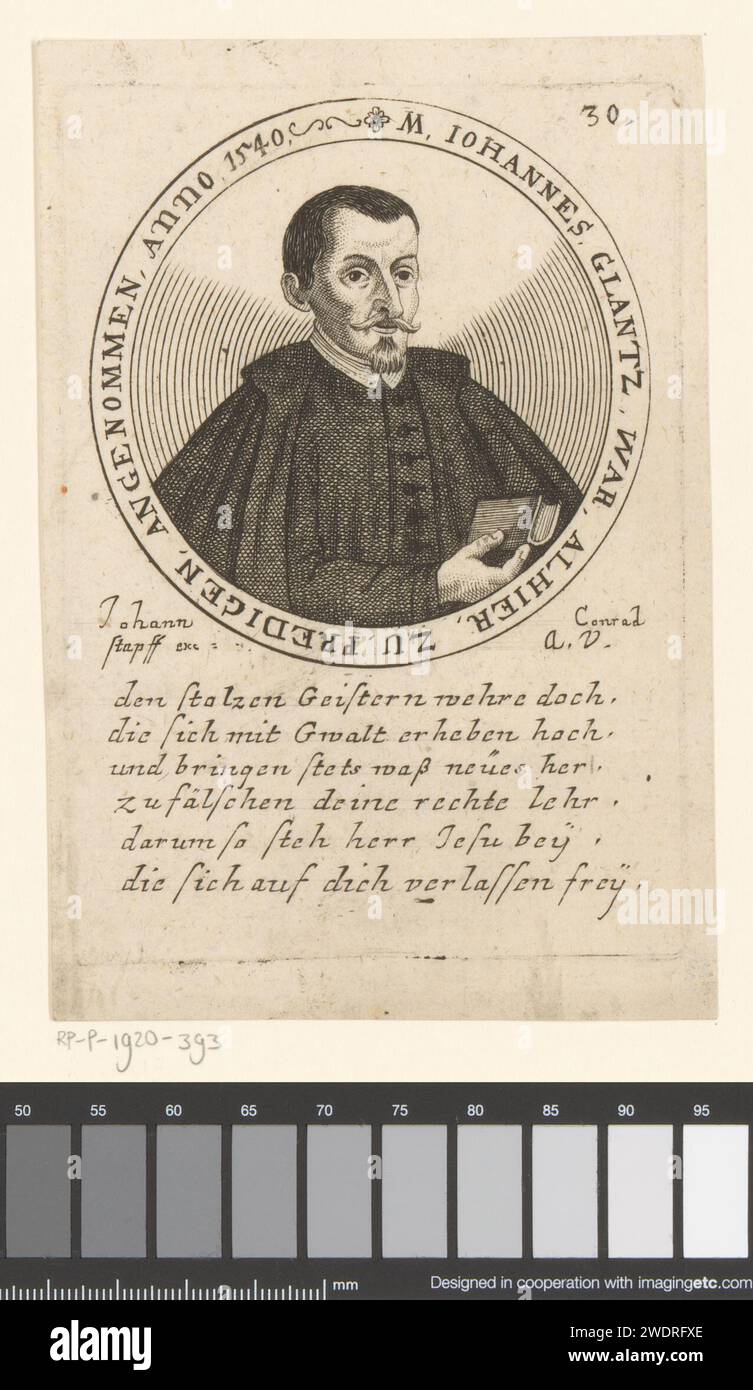 30.
M, IOHANNES, GLANTZ, WAR, ALHIER, ZU, PREDIGEN, ANGENOMMEN, Anno, 1540,
Johann
stapff exc
Conrad
A. V.
den ſtolzen Geiſtern wehre doch.
die ſich mit Gwalt erheben hoch.
und bringen ſtets waß neües her.
zu fälſchen deine rechte lehr.
darum ſo ſteh herr Jeſu beÿ.
die ſich auf dich verlaſſen freÿ.
RP-P-1920-393
50 55 60 65 70 75 80 85 90 95
mm
Designed in cooperation with imagingetc.com
alamy
a
alamy
Image ID: 2WDRFXE
www.alamy.com